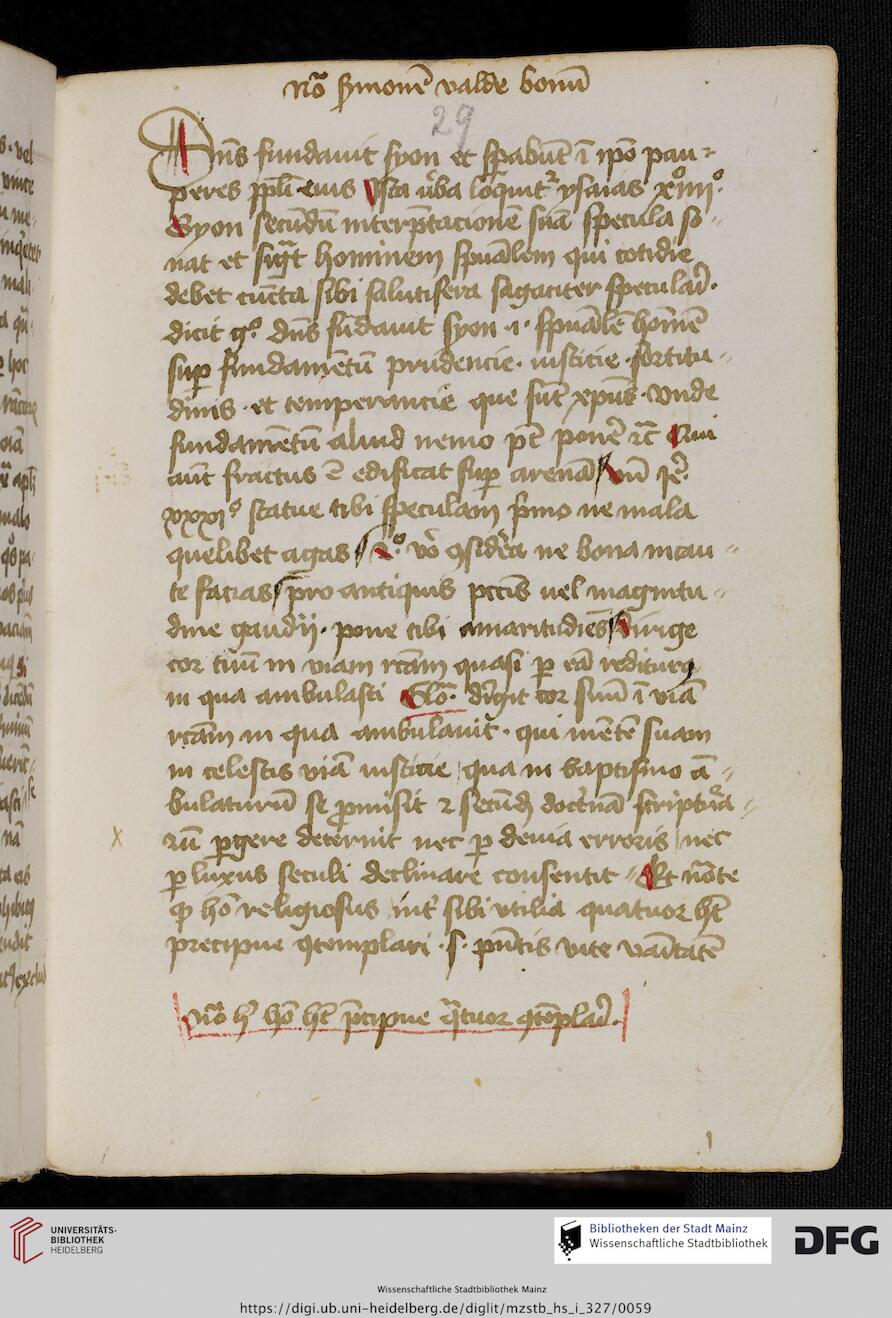 Nō sermonē valde bonū
29
Dn̄s fundauit syon et sp̄abūt ī ip̄o pau-
peres ppl̄i eius Ista v̄ba loq̄uit ysaias xoiiiio.
Syon secundū interp̄tacionē suā specula so-
nat et sig̅t hominem sp̄uālem qui cotidie
debet cūcta sibi salutifera sagaciter speculari.
dicit go dn̄s fūdauit syon .i. sp̄uālē hoīnē
sup fundamētū prudencie. iusticie. fortitu-
dinis. et temperancie que sūt xp̄us. Vnde
fundamētū aliud nemo pt̄ ponē rc̄ Qui
aūt fractus ē edificat sup arenā Vn̄ Je.
xxxio statue tibi speculam p̄mo ne mala
quelibet agas 2o. vo ꝯsidera ne bona incau-
te facias pro antiquis pcc̄is vel magnitu-
dine gaudij. pone tibi amaritudīes Dirige
cor tuū in viam rc̄am quasi p eā rediturꝰ
in qua ambulasti Glō. dirigit cor suū ī viā
rc̄am in qua ambulauit. qui mētē suam
in celestis viā iusticie qua in baptismo ā-
bulaturū se promisit ⁊ secūdū doct̄nā scriptura-
rū pergere decreuit nec p deuia erroris nec
p luxus seculi declinare consentit Et nōte
ꝙ hō religiosus int̄ sibi vtilia quatuor hꝫt
precipue ꝯtemplari .s. pn̄tis vite vanitatē
Nō hic hō hꝫt p̄cipue quatuor ꝯtēplari.
UNIVERSITÄTS-
BIBLIOTHEK
HEIDELBERG
Bibliotheken der Stadt Mainz
Wissenschaftliche Stadtbibliothek
DFG
Wissenschaftliche Stadtbibliothek Mainz
https://digi.ub.uni-heidelberg.de/diglit/mzstb_hs_i_327/0059